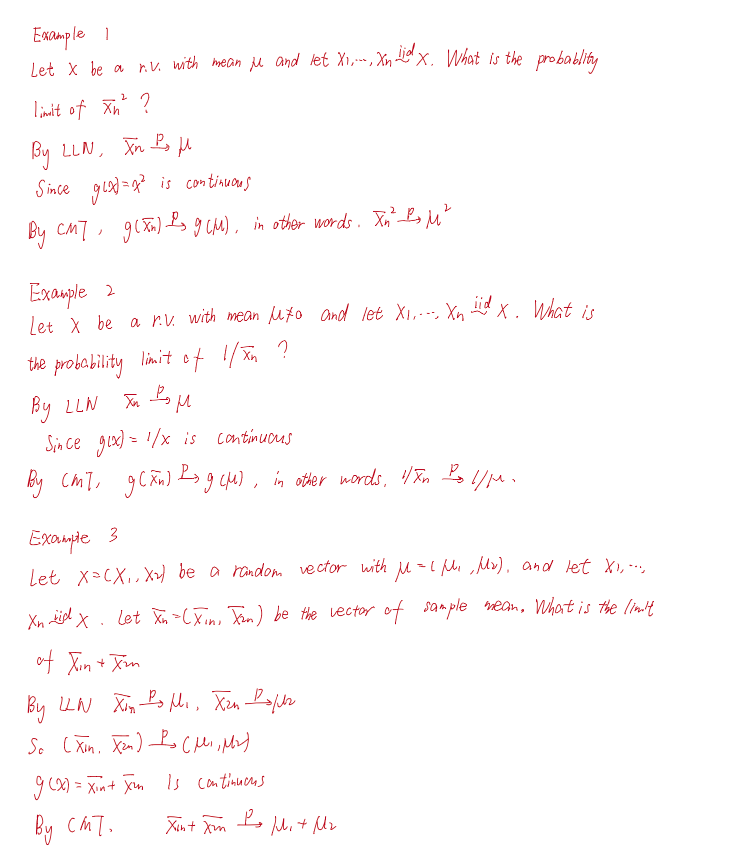 Example 1
Let X be a r.v. with mean μ and let X₁,…,Xₙ iid~ X. What is the probablity
limit of X̄ₙ² ?
By LLN, X̄ₙ →ᵖ μ
Since g(x)=x² is continuous
By CMT, g(X̄ₙ) →ᵖ g(μ), in other words. X̄ₙ² →ᵖ μ²
Example 2
Let X be a r.v. with mean μ≠0 and let X₁,…, Xₙ iid~ X. What is
the probability limit of 1/X̄ₙ ?
By LLN X̄ₙ →ᵖ μ
Since g(x) = 1/x is continuous
By CMT, g(X̄ₙ) →ᵖ g(μ), in other words, 1/X̄ₙ →ᵖ 1/μ.
Example 3
Let X=(X₁, X₂) be a random vector with μ=(μ₁, μ₂), and let X₁,…,
Xₙ iid~ X. Let X̄ₙ=(X̄₁ₙ, X̄₂ₙ) be the vector of sample mean. What is the limit
of X̄₁ₙ + X̄₂ₙ
By LLN X̄₁ₙ →ᵖ μ₁, X̄₂ₙ →ᵖ μ₂
So (X̄₁ₙ, X̄₂ₙ) →ᵖ (μ₁, μ₂)
g(x) = X̄₁ₙ + X̄₂ₙ is continuous
By CMT. X̄₁ₙ + X̄₂ₙ →ᵖ μ₁ + μ₂